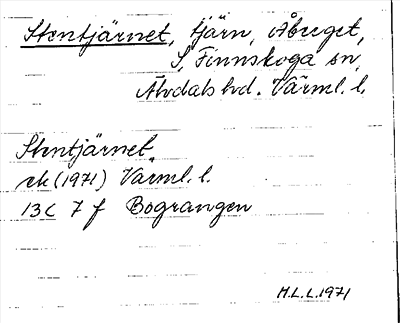 Stentjärnet, tjärn, Åbuget,
S. Finnskoga sn,
Älvdals hd. Värml. l.
Stentjärnet
ek (1971) Värml. l.
13C 7f Bograngen
H.L.L. 1971